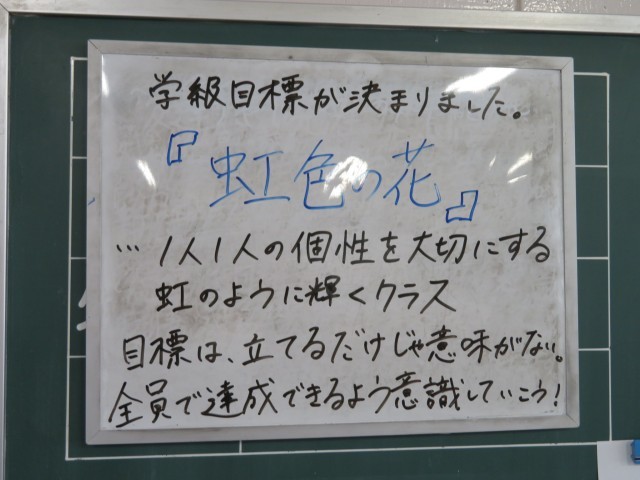 学級目標が決まりました。
『虹色の花』
…1人1人の個性を大切にする
虹のように輝くクラス
目標は、立てるだけじゃ意味がない。
全員で達成できるよう意識していこう!